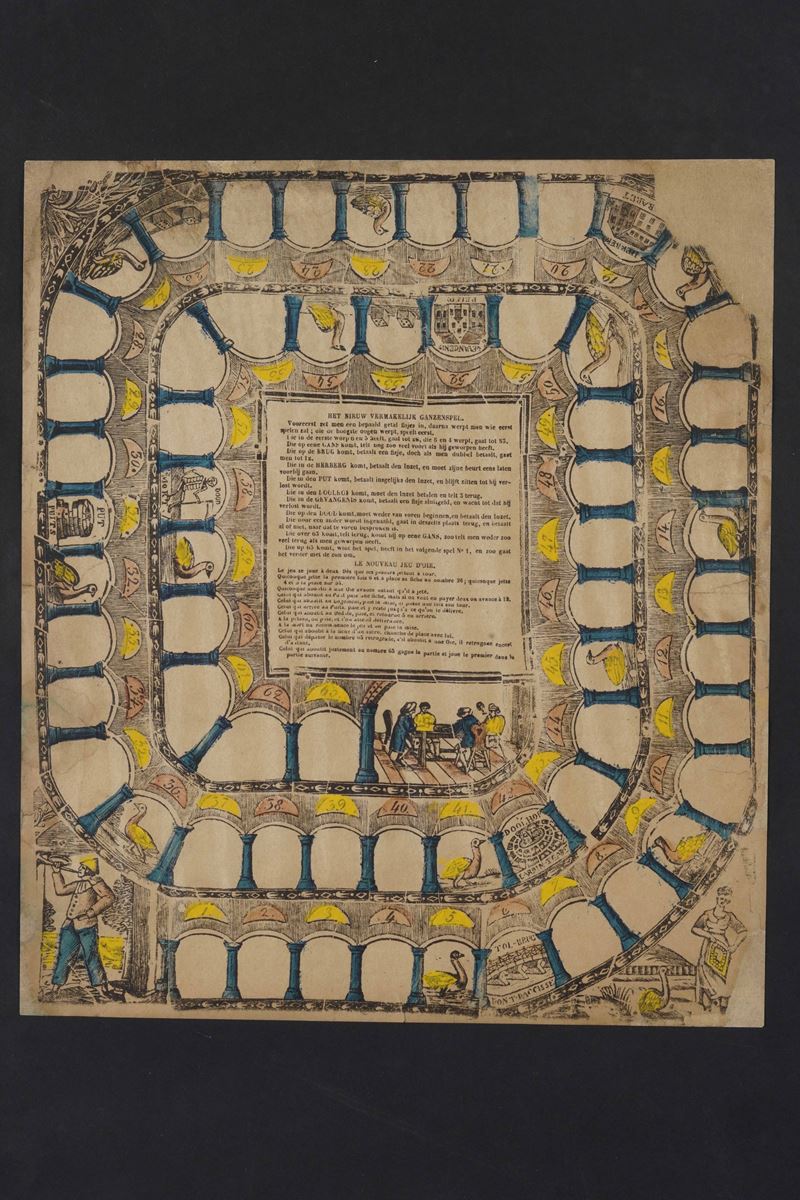 HET NIEUW VERMAKELIJK GANZENSPEL.
Vooreerst zet men een bepaald getal fisjes in, daarna werpt men wie eerst
spelen zal; die de hoogste oogen werpt, speelt eerst.
Die in de eerste worp en 5 zoelt, gaat tot 26, die 5 en 4 werpt, gaat tot 53.
Die op eene GANS komt, telt nog zoo veel voort als hij geworpen heeft.
Die op de BRUG komt, betaalt een fisje, doch als men dubbel betaalt, gaat
men tot 12.
Die in de HERBERG komt, betaalt den inzet, en moet zijne beurt eens laten
voorbij gaan.
Die in den PUT komt, betaalt insgelijks den inzet, en blijft zitten tot hij ver-
lost wordt.
Die in den DOOLHOF komt, moet den inzet betalen en telt 3 terug.
Die in de GEVANGENIS komt, betaalt een fisje sluitgeld, en wacht tot dat hij
verlost wordt.
Die op den DOOD komt, moet weder van voren beginnen, en betaalt den inzet.
Die door een ander wordt ingemaakt, gaat in deszelfs plaats terug, en betaalt
al of niet, naar dat te voren besproken is.
Die over 63 komt, telt terug, komt hij op eene GANS, zoo telt men weder zoo
veel terug als men geworpen heeft.
Die op 63 komt, wint het spel, heeft in het volgende spel N° 1, en zoo gaat
het verder met de zon om.
LE NOUVEAU JEU D'OIE.
Le jeu se joue à deux dés que les joueurs jettent à tour.
Quiconque jette la première fois 6 et 3 place sa fiche au nombre 26; quiconque jette
4 et 5 la place sur 53.
Quiconque aboutit à une Oie avance autant qu'il a jeté.
Celui qui aboutit au Pont paie une fiche, mais si on veut en payer deux on avance à 12.
Celui qui aboutit au Logement, paie la mise, et passe une fois son tour.
Celui qui arrive au Puits, paie et y reste jusqu'à ce qu'on le délivre.
Celui qui aboutit au Dédale, paie, et retourne 3 en arrière.
A la prison, on paie, et l'on attend délivrance.
A la mort on recommence le jeu et on paie la mise.
Celui qui aboutit à la fiche d'un autre, change de place avec lui.
Celui qui dépasse le nombre 63 rétrograde, s'il aboutit à une Oie, il rétrograde encore
d'autant.
Celui qui aboutit justement au nombre 63 gagne la partie et joue le premier dans la
partie suivante.
1 2 3 4 5 6
TOL-BRUG
PONT D'ACCISE
8 9 10 11 12 14 16
20 21 22 23 24 25 26
HERBERG
CABARET
28 29 30
PUT
PUITS
32 33 34 35 36 37 38 39 40 41 42
DOOLHOF
LABYRINTHE
44 46 47 48 50 51 52
GEVANGENIS
PRISON
54 56 57 58
DOOD
MORT
59 60 61 62 63